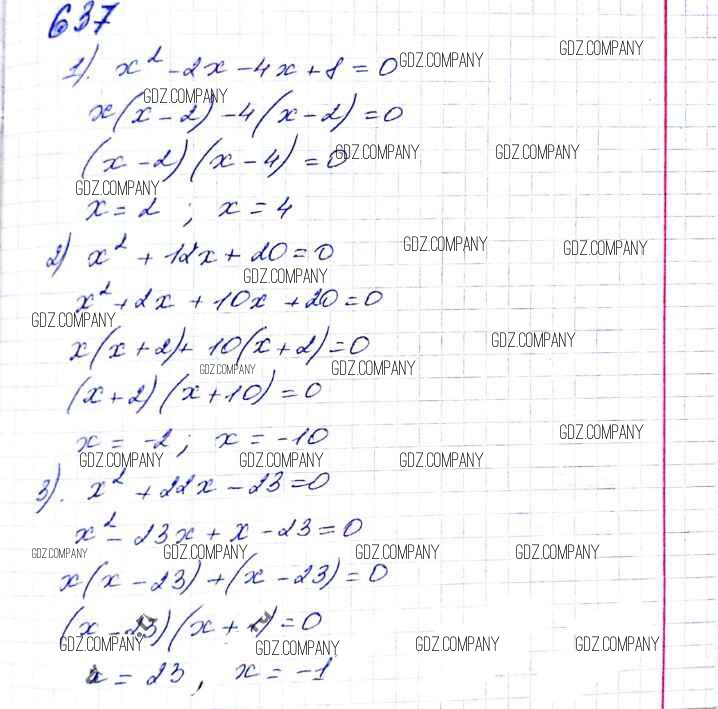 637
1). x² - 2x - 4x + 8 = 0 GDZ.COMPANY GDZ.COMPANY
GDZ.COMPANY
x(x - 2) - 4(x - 2) = 0
(x - 2)(x - 4) = 0 GDZ.COMPANY GDZ.COMPANY
GDZ.COMPANY
x = 2 ; x = 4
2) x² + 12x + 20 = 0 GDZ.COMPANY GDZ.COMPANY
GDZ.COMPANY
x² + 2x + 10x + 20 = 0
GDZ.COMPANY
x(x + 2) + 10(x + 2) = 0 GDZ.COMPANY
GDZ.COMPANY GDZ.COMPANY
(x + 2)(x + 10) = 0
x = -2 ; x = -10 GDZ.COMPANY
GDZ.COMPANY GDZ.COMPANY GDZ.COMPANY
3). x² + 22x - 23 = 0
x² - 23x + x - 23 = 0
GDZ.COMPANY GDZ.COMPANY GDZ.COMPANY GDZ.COMPANY
x(x - 23) + (x - 23) = 0
(x - 23)(x + 1) = 0
GDZ.COMPANY GDZ.COMPANY GDZ.COMPANY GDZ.COMPANY
x = 23 , x = -1